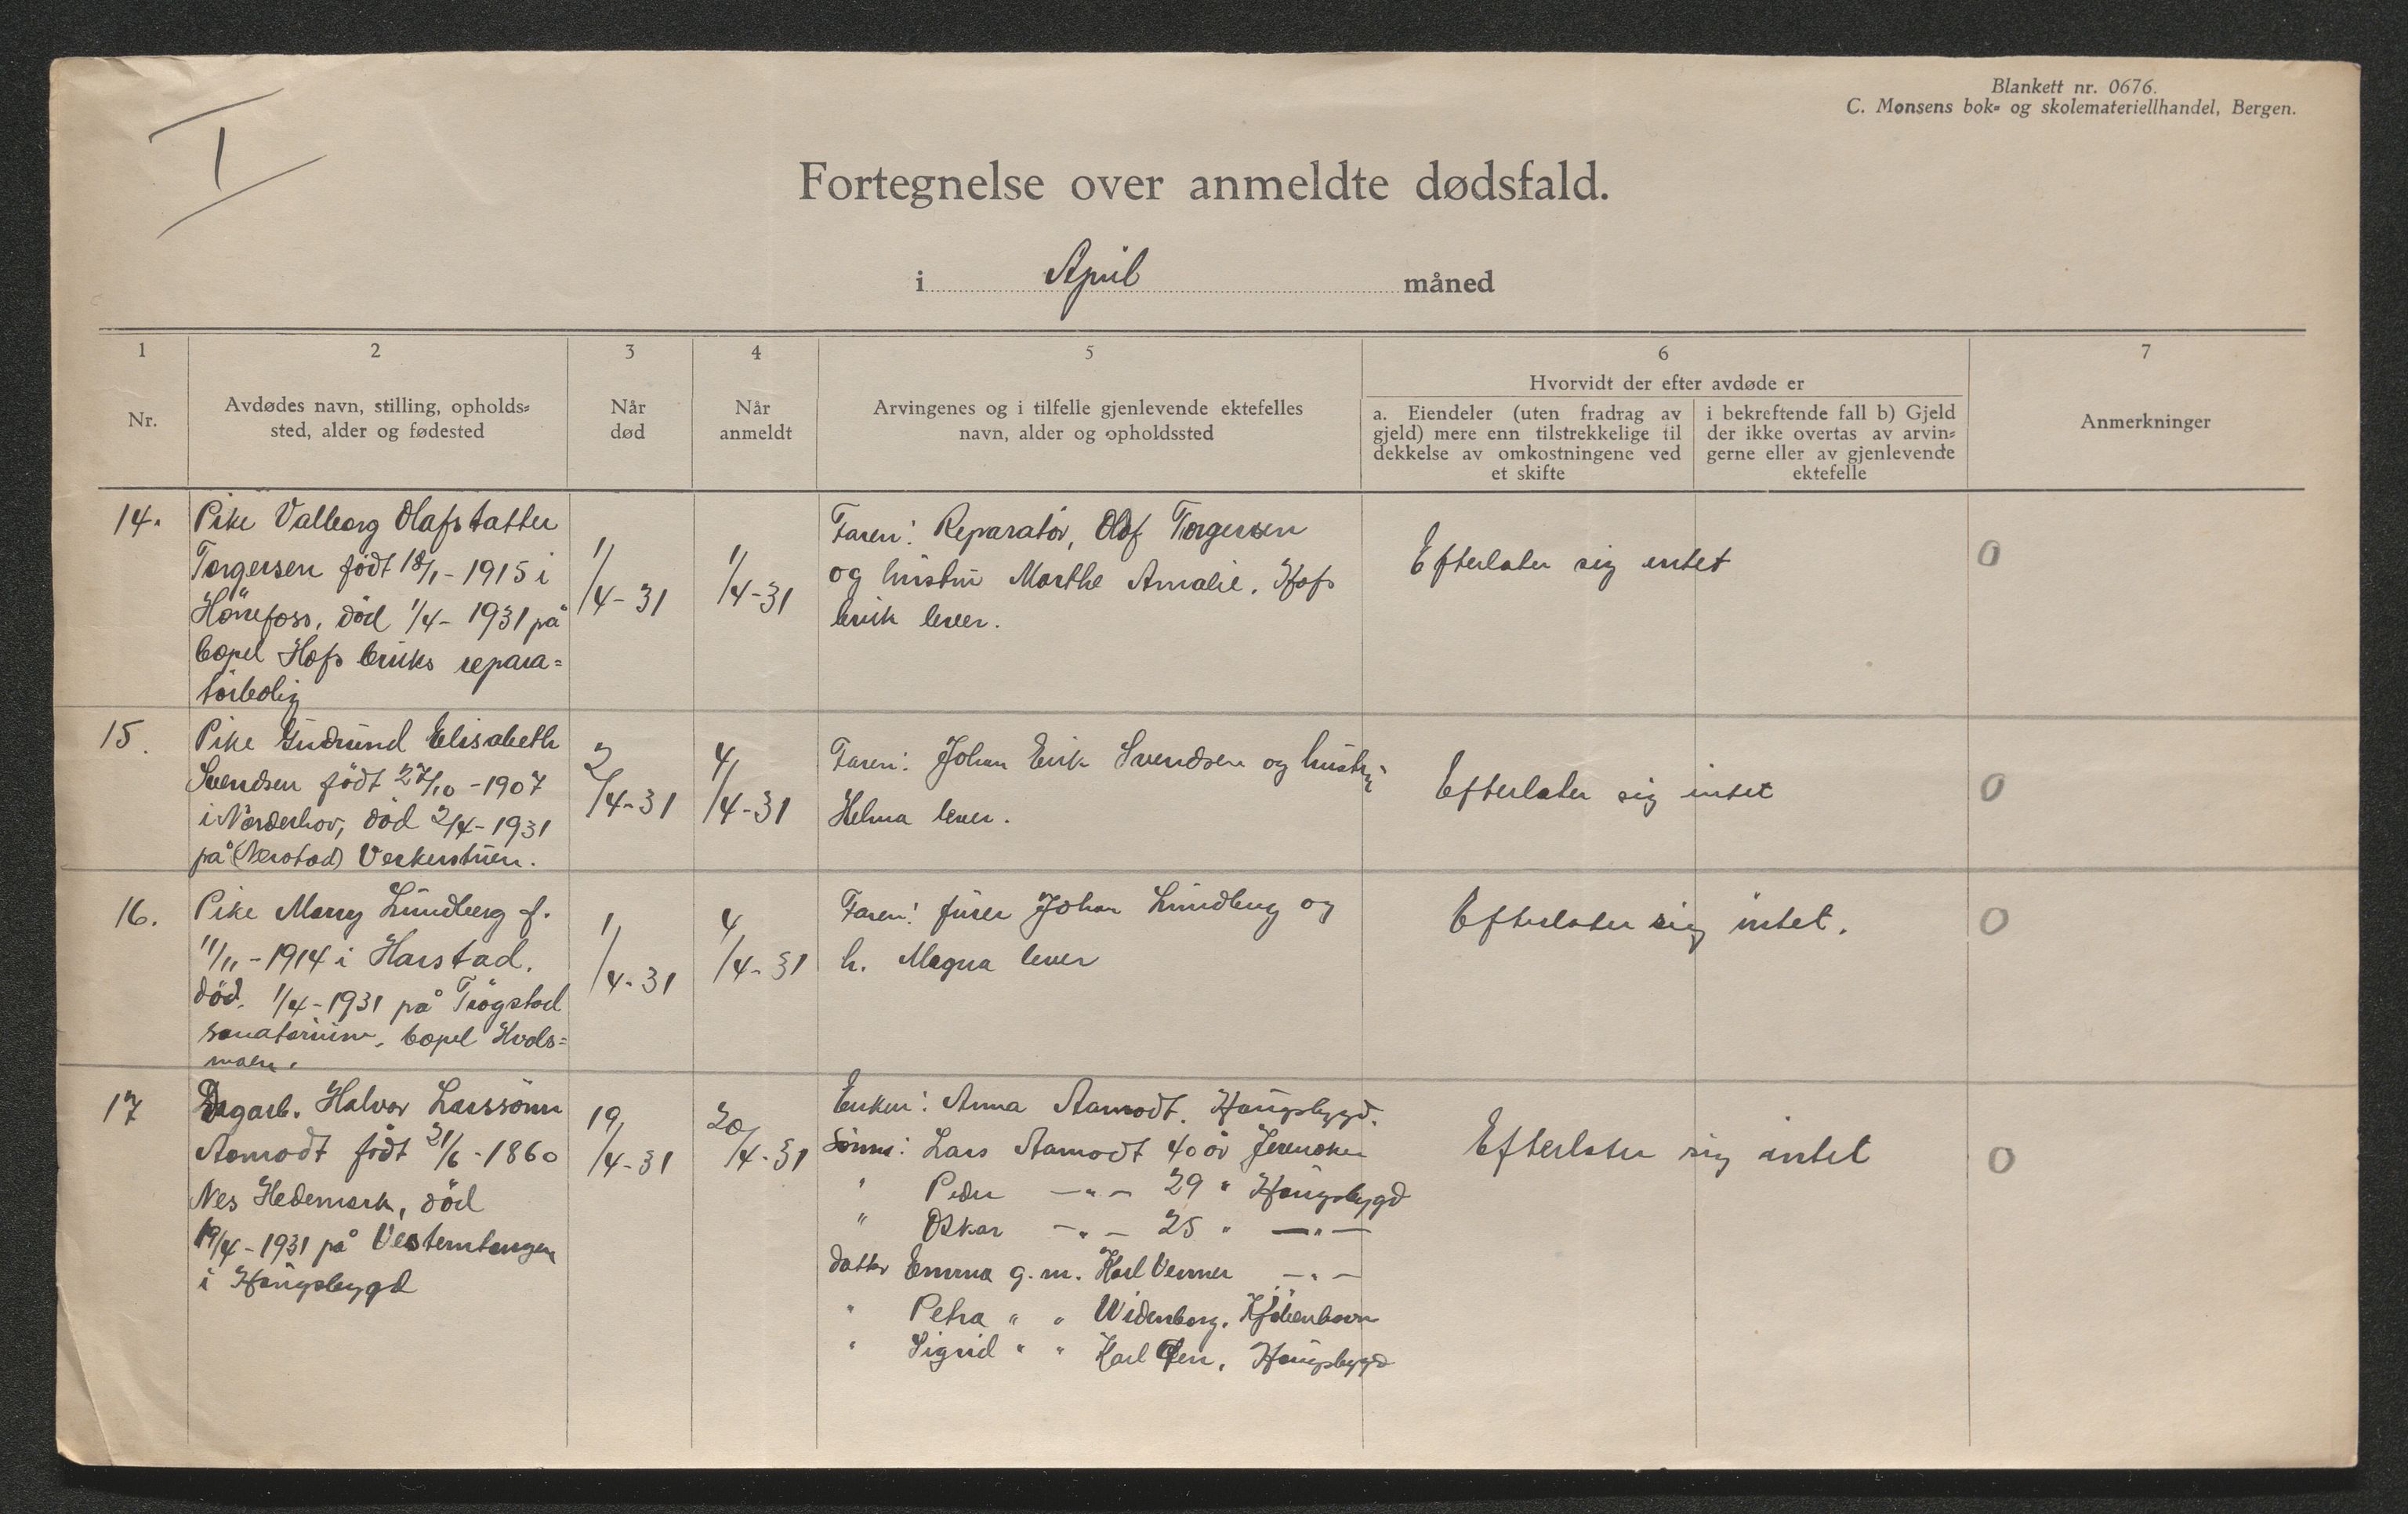 Blankett nr. 0676.
C. Monsens bok- og skolemateriellhandel, Bergen.
I
Fortegnelse over anmeldte dødsfald.
i April måned
1
2
3
4
5
6
7
Nr.
Avdødes navn, stilling, opholds-
sted, alder og fødested
Når
død
Når
anmeldt
Arvingenes og i tilfelle gjenlevende ektefelles
navn, alder og opholdssted
Hvorvidt der efter avdøde er
a. Eiendeler (uten fradrag av
gjeld) mere enn tilstrekkelige til
dekkelse av omkostningene ved
et skifte
i bekreftende fall b) Gjeld
der ikke overtas av arvin-
gerne eller av gjenlevende
ektefelle
Anmerkninger
14.
Pike Valborg Olafstatter
Torgersen født 18/1 - 1915 i
Hönefoss, död 1/4 - 1931 på
Hofs bruks repara-
törbolig
1/4-31
1/4-31
Faren: Reparatör, Olof Torgersen
og hustru Marthe Amalie. Hofs
bruk lever.
Efterlater sig intet
0
15.
Pike Gudrund Elisabeth
Svendsen födt 27/10 - 1907
i Norderhov, död 2/4 - 1931
på (Nerstad) Verkenstuen.
2/4-31
4/4-31
Faren: Johan Erik Svendsen og hustru
Helma lever.
Efterlater sig intet
0
16.
Pike Marry Lundberg f.
11/11 - 1914 i Harstad.
död. 1/4 - 1931 på Trögstad
sanatorium. Hvals-
moen.
1/4-31
4/4-31
Faren: furer Johan Lundberg og
h. Magna lever
Efterlater sig intet.
0
17
Dagarb. Halvor Larssönn
Aamodt födt 21/6 - 1860
Nes Hedemark, död
19/4 - 1931 på Vesterntangen
i Haugsbygd
19/4-31
20/4-31
Enken: Anna Aamodt. Haugsbygd.
Sönn: Lars Aamodt 40 år Jevnaker
" Peder -"- 29 " Haugsbygd
" Oskar -"- 25 " -"-
datter Emma g.m. Karl Verner -"-
" Petra " " Widenborg. Kjöbenhavn
" Sigrid " " Karl Haugsbygd
Efterlater sig intet
0